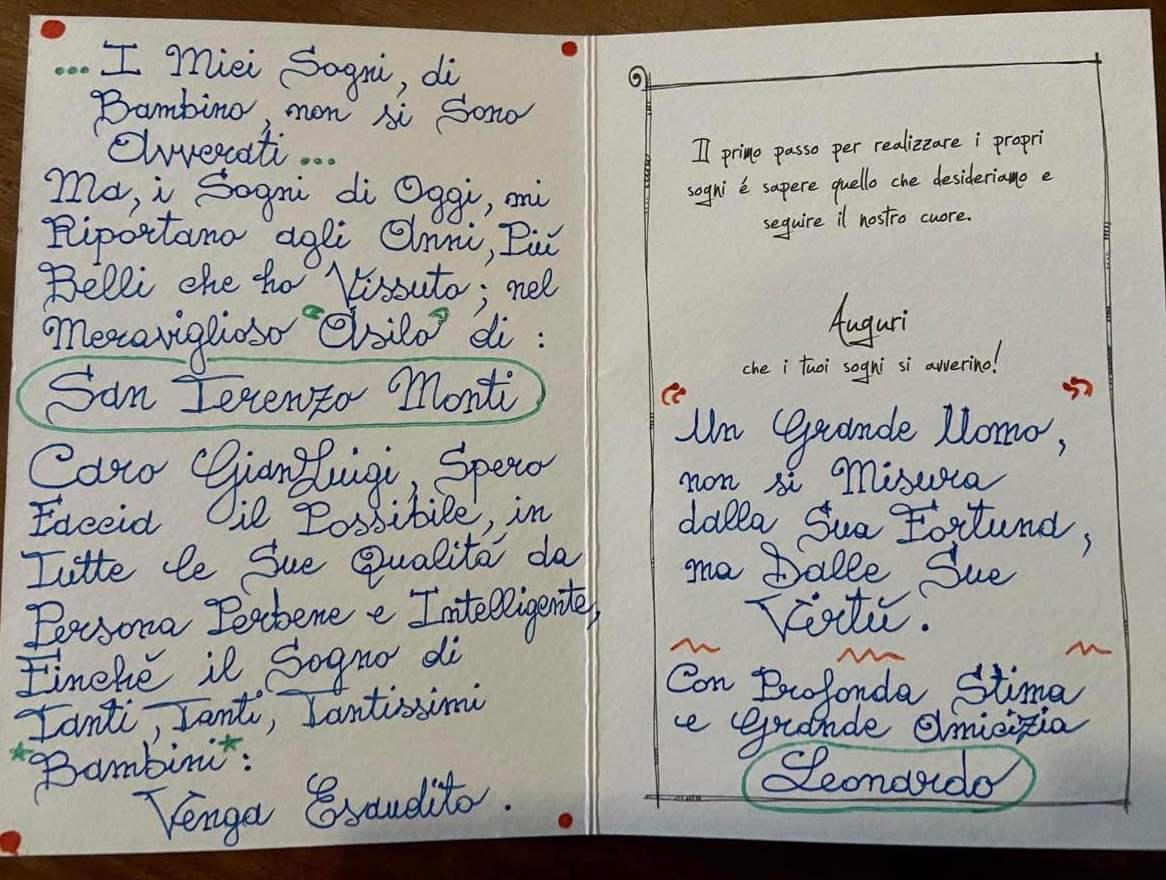 ... I Miei Sogni, di
Bambino, non si Sono
Avverati ...
Ma, i Sogni di Oggi, mi
Riportano agli Anni, Più
Belli che ho Vissuto; nel
Meraviglioso "Asilo" di :
San Terenzo Monti
Caro GianLuigi, Spero
Faccia il Possibile, in
Tutte le Sue Qualità da
Persona Perbene e Intelligente,
Finchè il Sogno di
Tanti, Tanti, Tantissimi
*Bambini*:
Venga Esaudito.
Il primo passo per realizzare i propri
sogni é sapere quello che desideriamo e
seguire il nostro cuore.
Auguri
che i tuoi sogni si avverino!
"Un Grande Uomo, "
non si Misura
dalla Sua Fortuna,
ma Dalle Sue
Virtù.
Con Profonda Stima
e Grande Amicizia
Leonardo